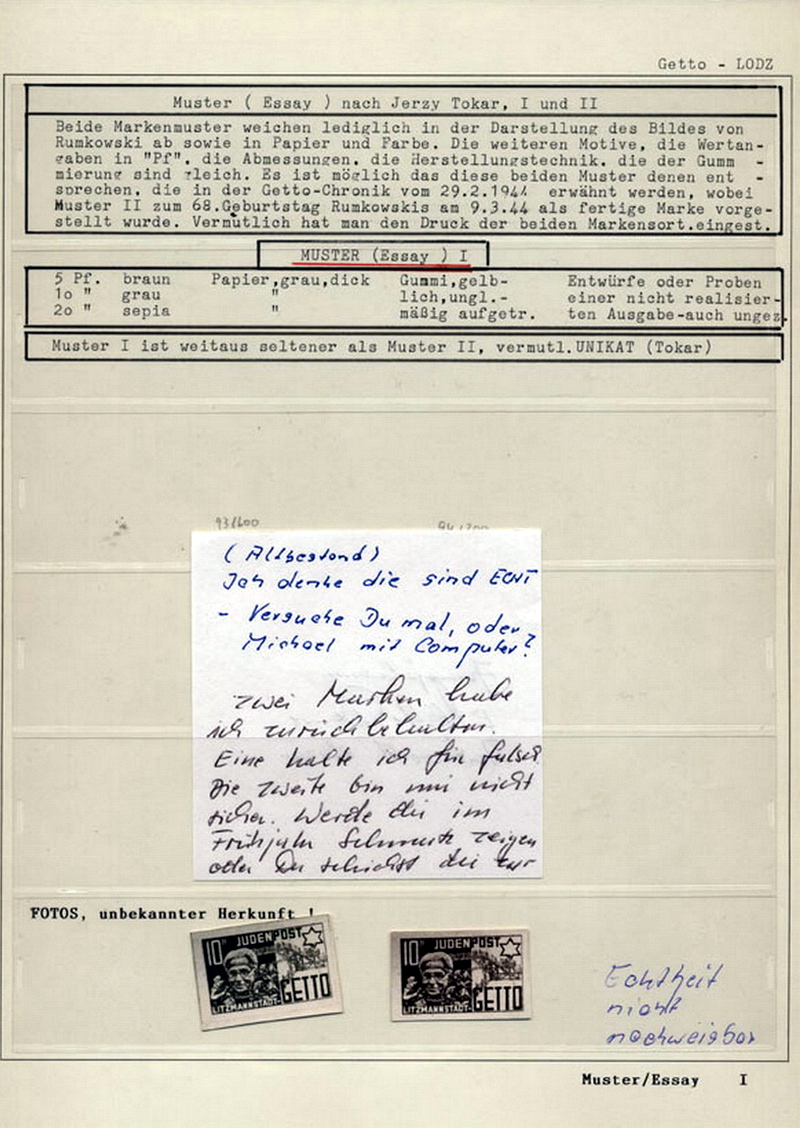 Getto - LODZ
Muster ( Essay ) nach Jerzy Tokar, I und II
Beide Markenmuster weichen lediglich in der Darstellung des Bildes von
Rumkowski ab sowie in Papier und Farbe. Die weiteren Motive, die Wertan-
gaben in "Pf", die Abmessungen, die Herstellungstechnik, die der Gumm -
mierung sind gleich. Es ist möglich das diese beiden Muster denen ent -
sprechen, die in der Getto-Chronik vom 29.2.1944 erwähnt werden, wobei
Muster II zum 68.Geburtstag Rumkowskis am 9.3.44 als fertige Marke vorge-
stellt wurde. Vermutlich hat man den Druck der beiden Markensort.eingest.
MUSTER (Essay ) I
5 Pf. braun Papier,grau,dick Gummi,gelb- Entwürfe oder Proben
1o " grau " lich,ungl.- einer nicht realisier-
2o " sepia " mäßig aufgetr. ten Ausgabe-auch ungez.
Muster I ist weitaus seltener als Muster II, vermutl.UNIKAT (Tokar)
93/600
(Altbestand)
Ich denke die sind ECHT
- Versuche Du mal, oder
Michael mit Computer?
zwei Marken habe
ich zurückbehalten.
Eine halte ich für falsch
Die zweite bin mir nicht
sicher. Werde die im
Frühjahr Schmutz zeigen
oder Du schickst die
FOTOS, unbekannter Herkunft !
10 JUDENPOST
GETTO
LITZMANNSTADT
10 JUDENPOST
GETTO
LITZMANNSTADT
Echtheit
nicht
nachweisbar
Muster/Essay I